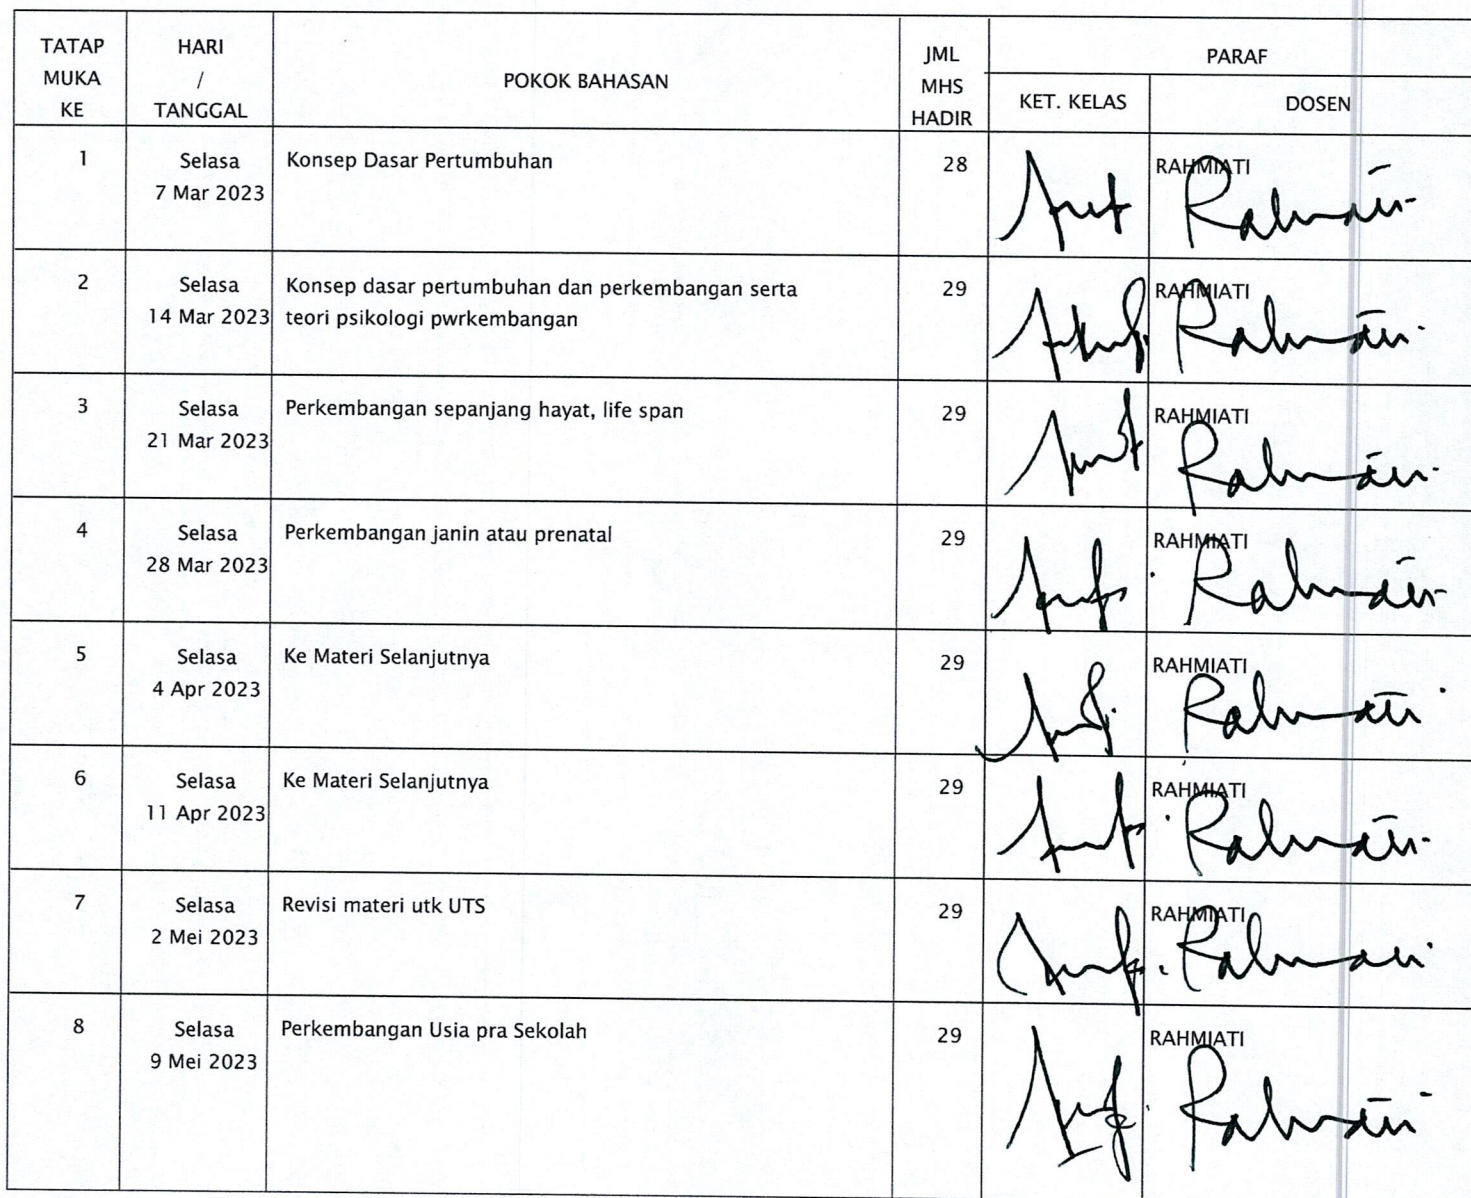 TATAP MUKA KE
HARI / TANGGAL
POKOK BAHASAN
JML MHS HADIR
PARAF
KET. KELAS
DOSEN
1
Selasa
7 Mar 2023
Konsep Dasar Pertumbuhan
28
RAHMIATI
2
Selasa
14 Mar 2023
Konsep dasar pertumbuhan dan perkembangan serta
teori psikologi pwrkembangan
29
RAHMIATI
3
Selasa
21 Mar 2023
Perkembangan sepanjang hayat, life span
29
RAHMIATI
4
Selasa
28 Mar 2023
Perkembangan janin atau prenatal
29
RAHMIATI
5
Selasa
4 Apr 2023
Ke Materi Selanjutnya
29
RAHMIATI
6
Selasa
11 Apr 2023
Ke Materi Selanjutnya
29
RAHMIATI
7
Selasa
2 Mei 2023
Revisi materi utk UTS
29
RAHMIATI
8
Selasa
9 Mei 2023
Perkembangan Usia pra Sekolah
29
RAHMIATI